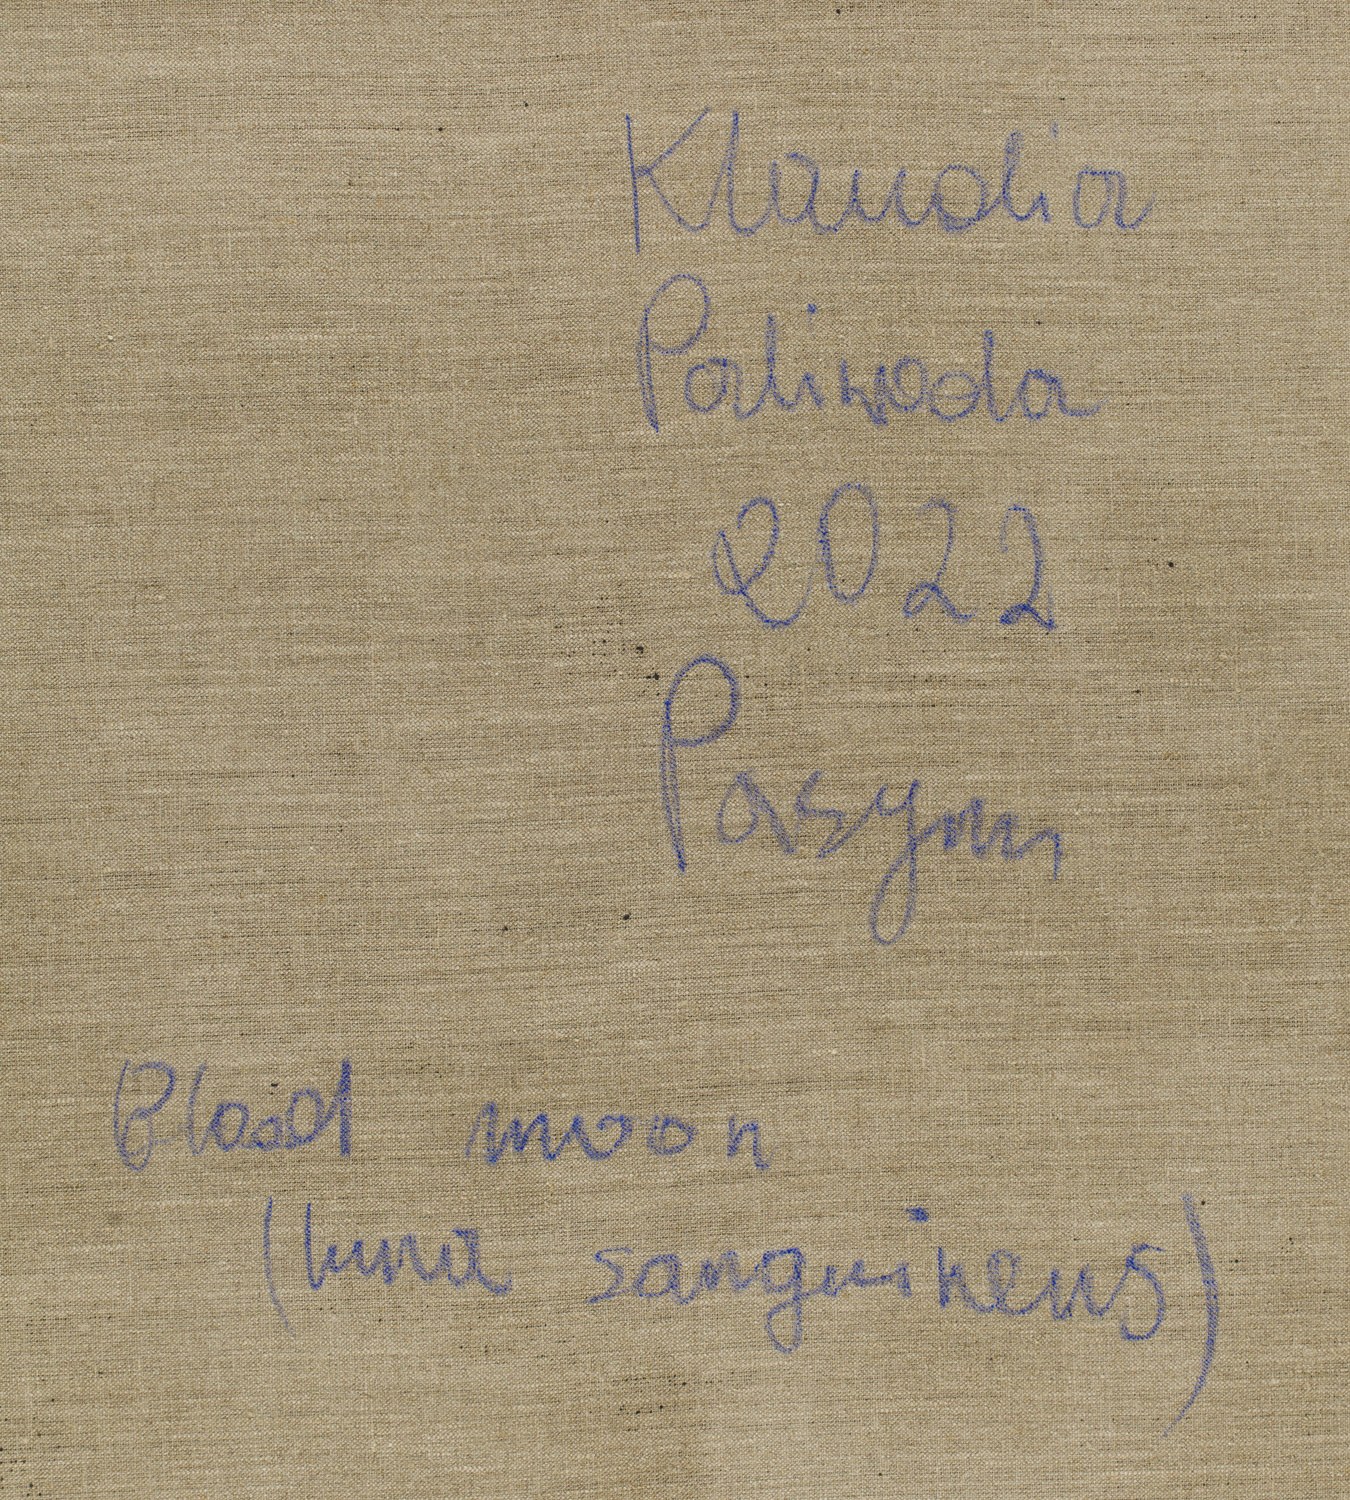 Klaudia
Paliwoda
2022
Pasym
Blood moon
(luna sanguineus)